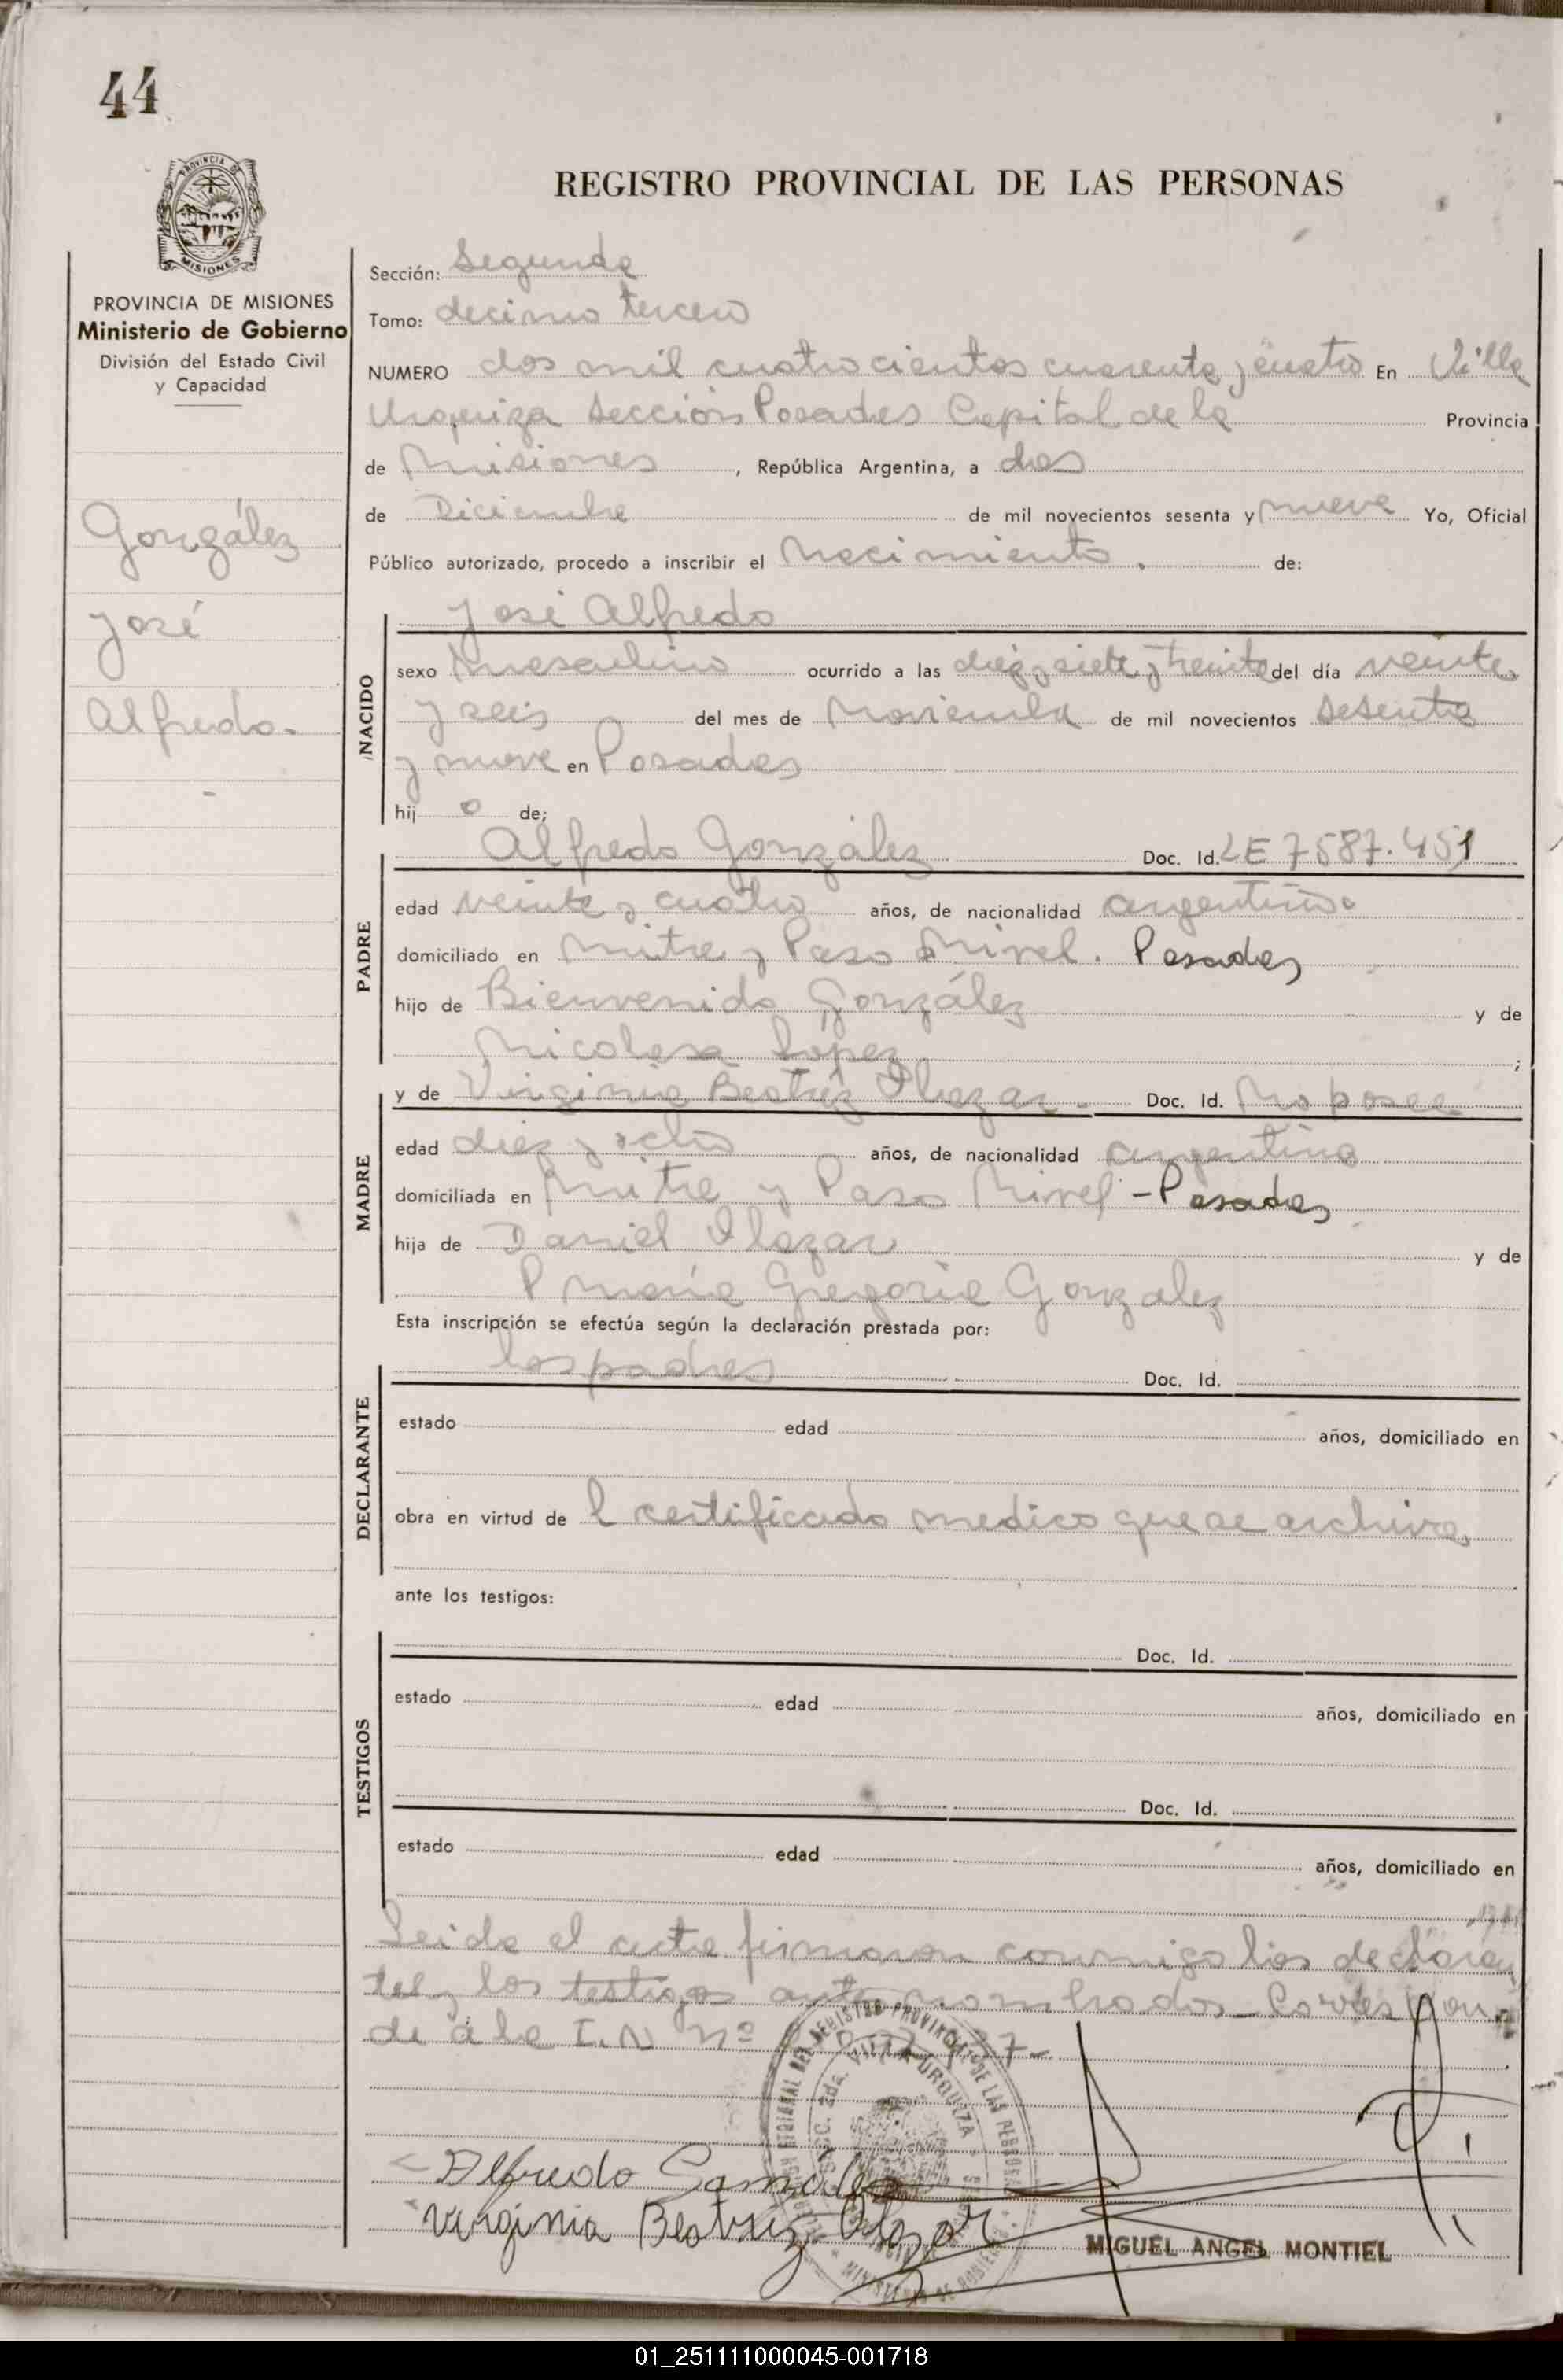 44
PROVINCIA DE
MISIONES
REGISTRO PROVINCIAL DE LAS PERSONAS
PROVINCIA DE MISIONES
Ministerio de Gobierno
División del Estado Civil
y Capacidad
González
José
Alfredo.
Sección: Segunda
Tomo: decimo tercero
NUMERO dos mil cuatrocientos cuarenta y cuatro En Villa
Urquiza Sección Posadas Capital de la Provincia
de Misiones, República Argentina, a dos
de Diciembre de mil novecientos sesenta y nueve Yo, Oficial
Público autorizado, procedo a inscribir el Nacimiento. de:
José Alfredo
NACIDO
sexo Masculino ocurrido a las diez y siete y treinta del día veinte
y seis del mes de Noviembre de mil novecientos sesenta
y nueve en Posadas
hijo de;
Alfredo González Doc. Id. LE 7587.451
PADRE
edad veinte y cuatro años, de nacionalidad argentino
domiciliado en Mitre y Paso Nivel. Posadas
hijo de Bienvenido González y de
Nicolasa López;
y de Virginia Beatriz Olazar - Doc. Id. No posee
MADRE
edad diez y ocho años, de nacionalidad argentina
domiciliada en Mitre y Paso Nivel - Posadas
hija de Daniel Olazar y de
María Gregoria Gonzalez
Esta inscripción se efectúa según la declaración prestada por:
los padres Doc. Id.
DECLARANTE
estado edad años, domiciliado en
obra en virtud de l certificado medico que se archiva
ante los testigos:
TESTIGOS
Doc. Id.
estado edad años, domiciliado en
Doc. Id.
estado edad años, domiciliado en
Leida el acta firmaron conmigo los declaran
tes y los testigos antes nombrados - Correspon
de a la I.N nº
Alfredo Gonzalez
Virginia Beatriz Olazar
MIGUEL ANGEL MONTIEL
01_251111000045-001718